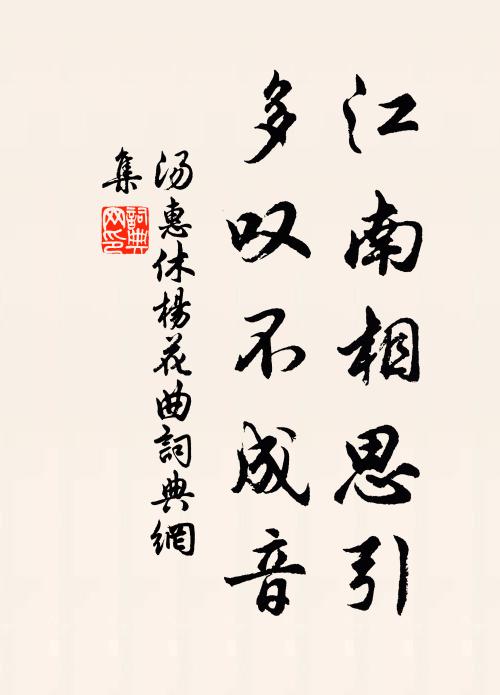 江南相思引
多叹不成音
汤惠休楊花曲詞典網
集
詞典网印